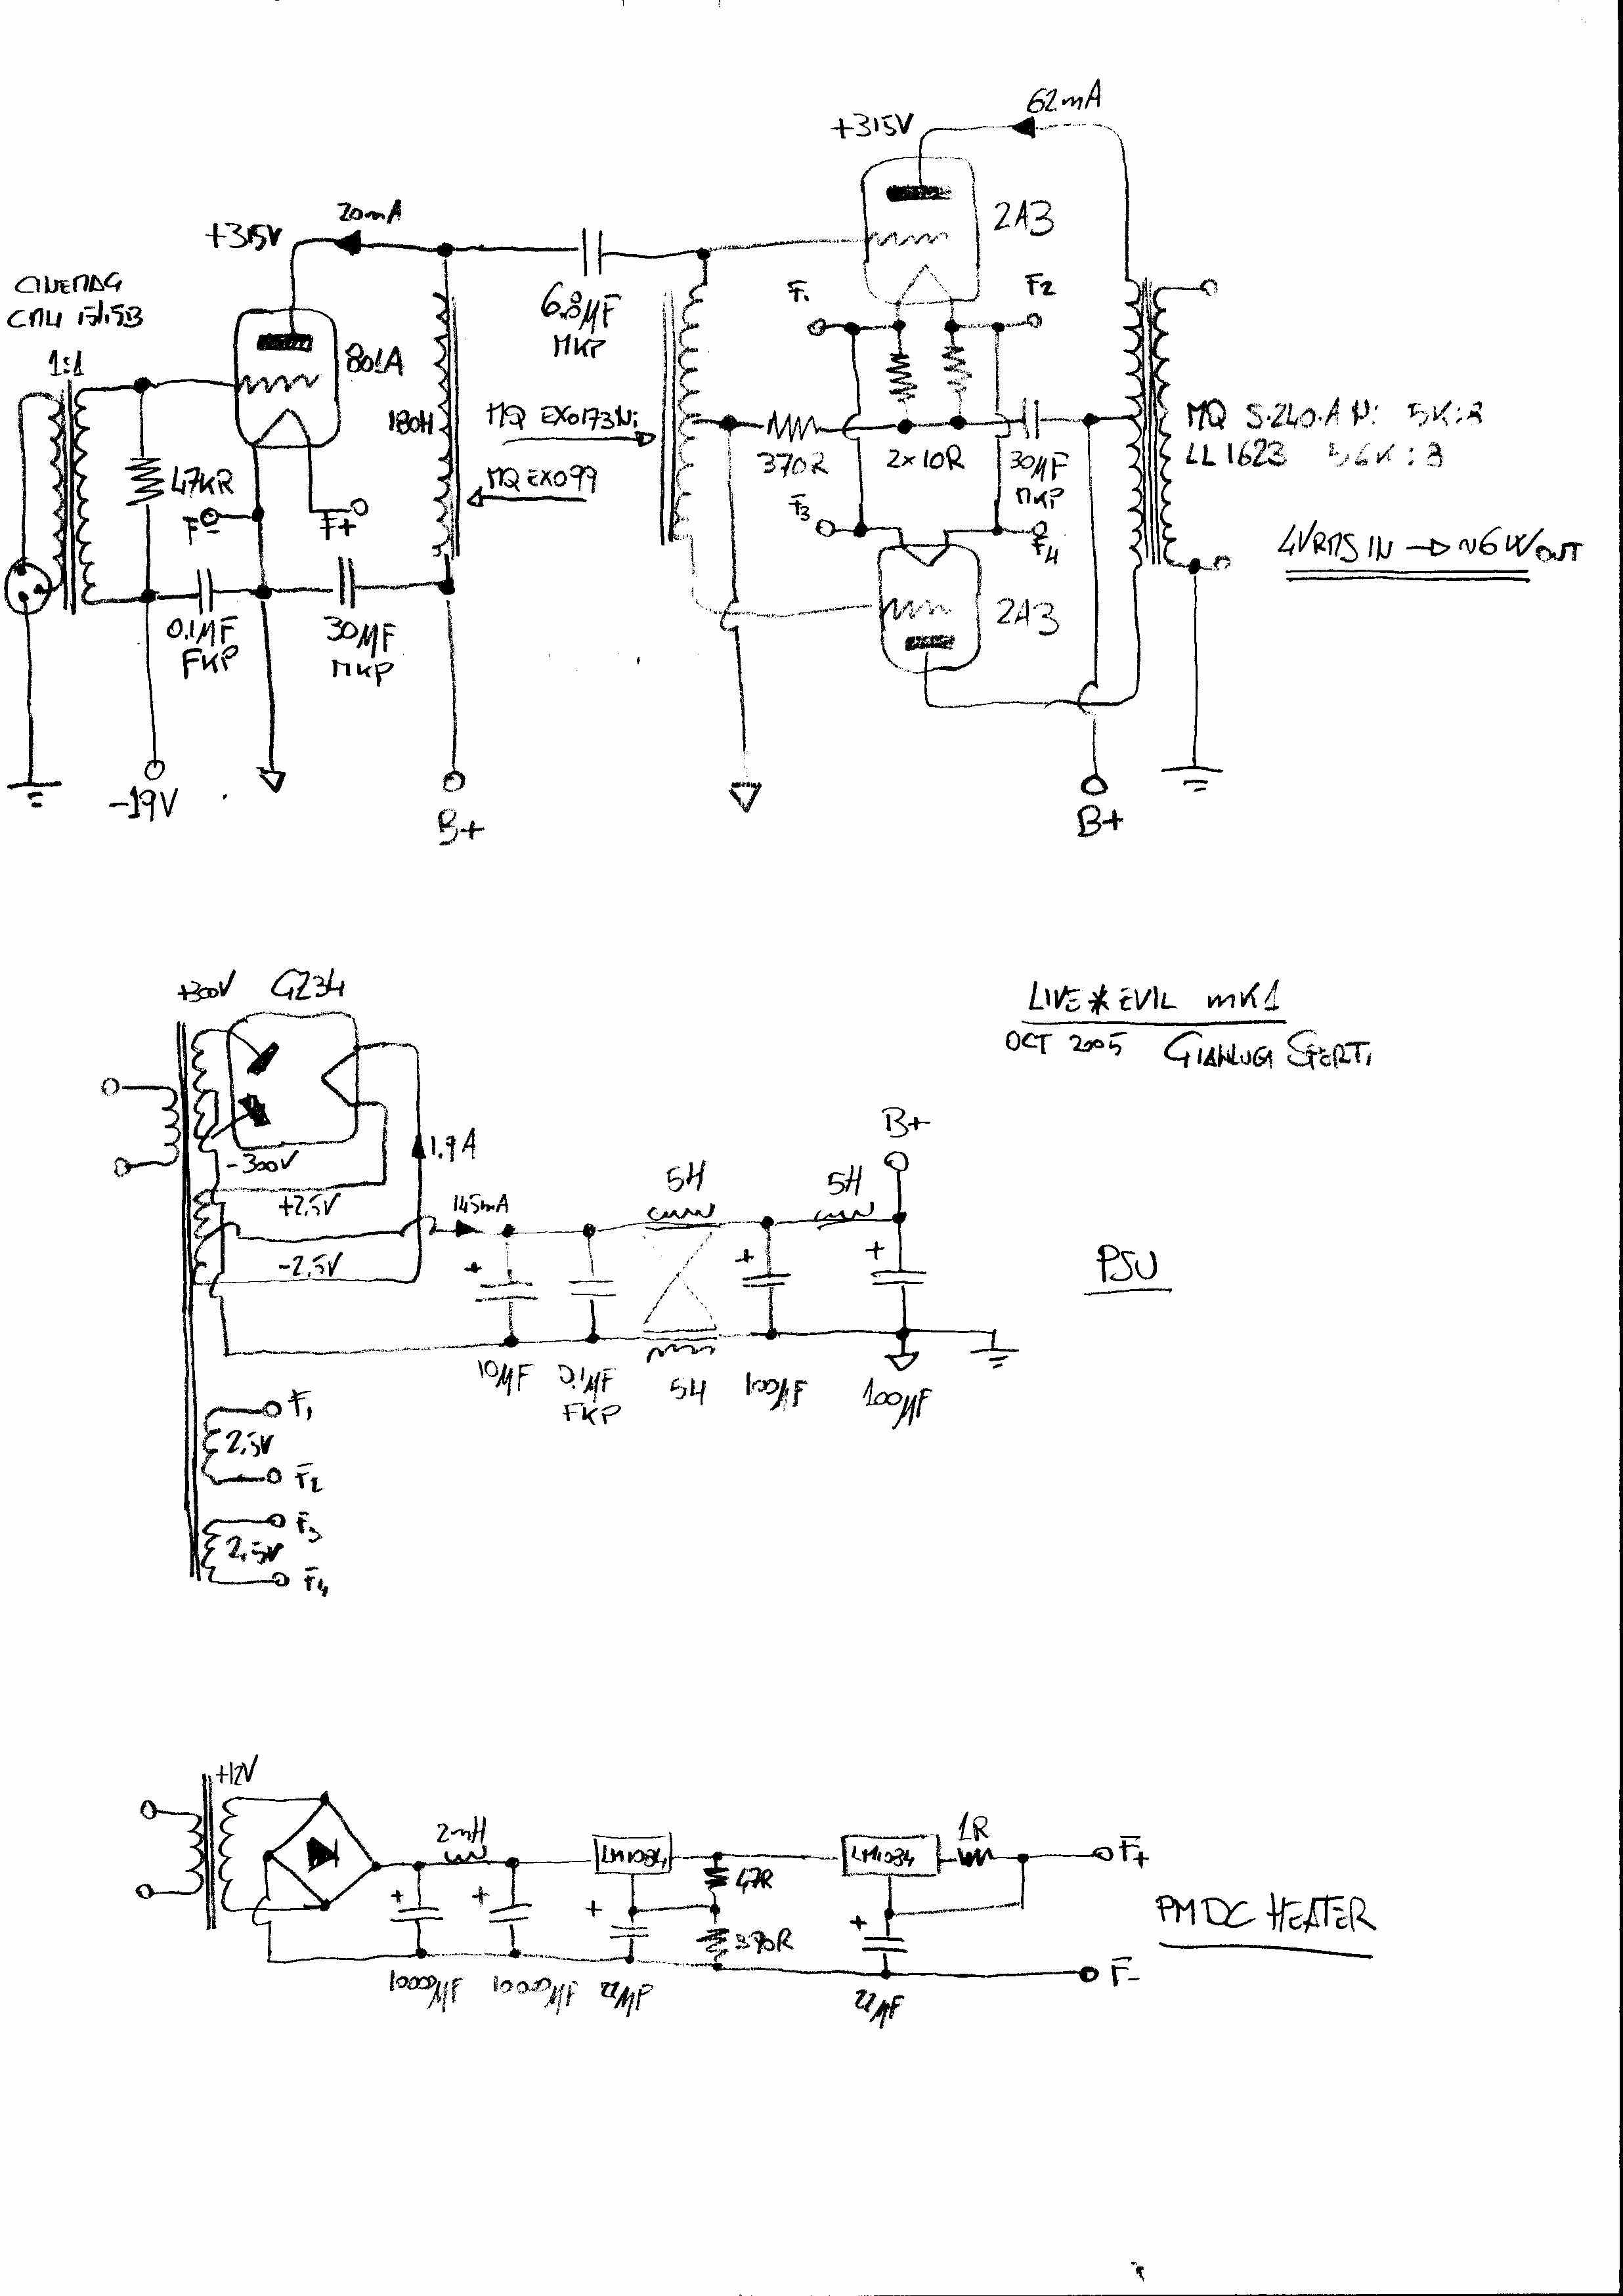 62mA
+315V
20mA
+315V
2A3
CINEMAG
1:1
801A
6.8µF
MKP
F1
F2
180H
MQ EX0173Ni
MQ EX099
47KR
F-
F+
370R
2x10R
30µF
MKP
MQ S.240.A Ni 5K:8
LL1623 5.6K:8
F3
F4
4VRMS IN → ~6W OUT
2A3
0.1µF
FKP
30µF
MKP
-19V
B+
B+
+300V
GZ34
LIVE*EVIL MK1
OCT 2005
-300V
1.9A
+2.5V
-2.5V
145mA
5H
5H
B+
+
+
+
PSU
10µF
0.1µF
FKP
5H
100µF
100µF
F1
2.5V
F2
F3
2.5V
F4
+12V
2mH
LM1084
47R
LM1084
1R
F+
+
+
+
+
390R
PM DC HEATER
10000µF
10000µF
22µF
22µF
F-